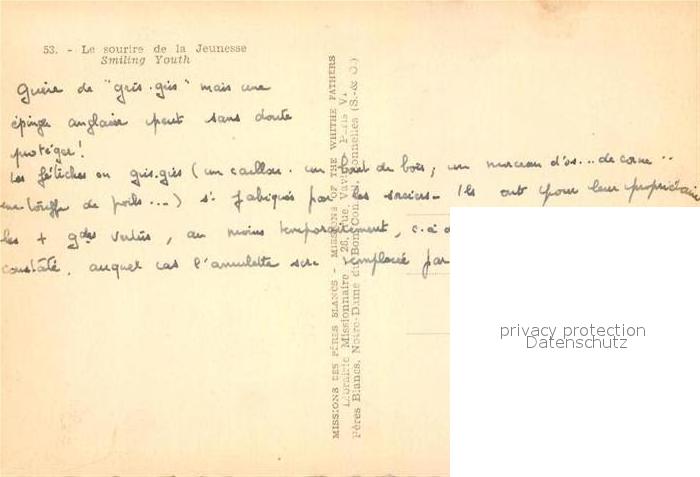 53. - Le sourire de la Jeunesse
Smiling Youth
Guère de "gris-gris" mais une
épingle anglaise peut sans doute
protéger!
Les fétiches ou gris-gris (un caillou, un bout de bois, un morceau d'os... de corne...
une touffe de poils...) st fabriqués par les sorciers. Ils ont pour leur propriétaire
les + gdes vertus, au moins temporairement, c.à d
constaté, auquel cas l'amulette sera remplacée par
MISSIONS DES PÈRES BLANCS - MISSIONS OF THE WHITHE FATHERS
Librairie Missionnaire - 26, Rue PARIS VI
Pères Blancs, Notre-Dame du Bon Conseil, (S.-&-O.)
privacy protection
Datenschutz